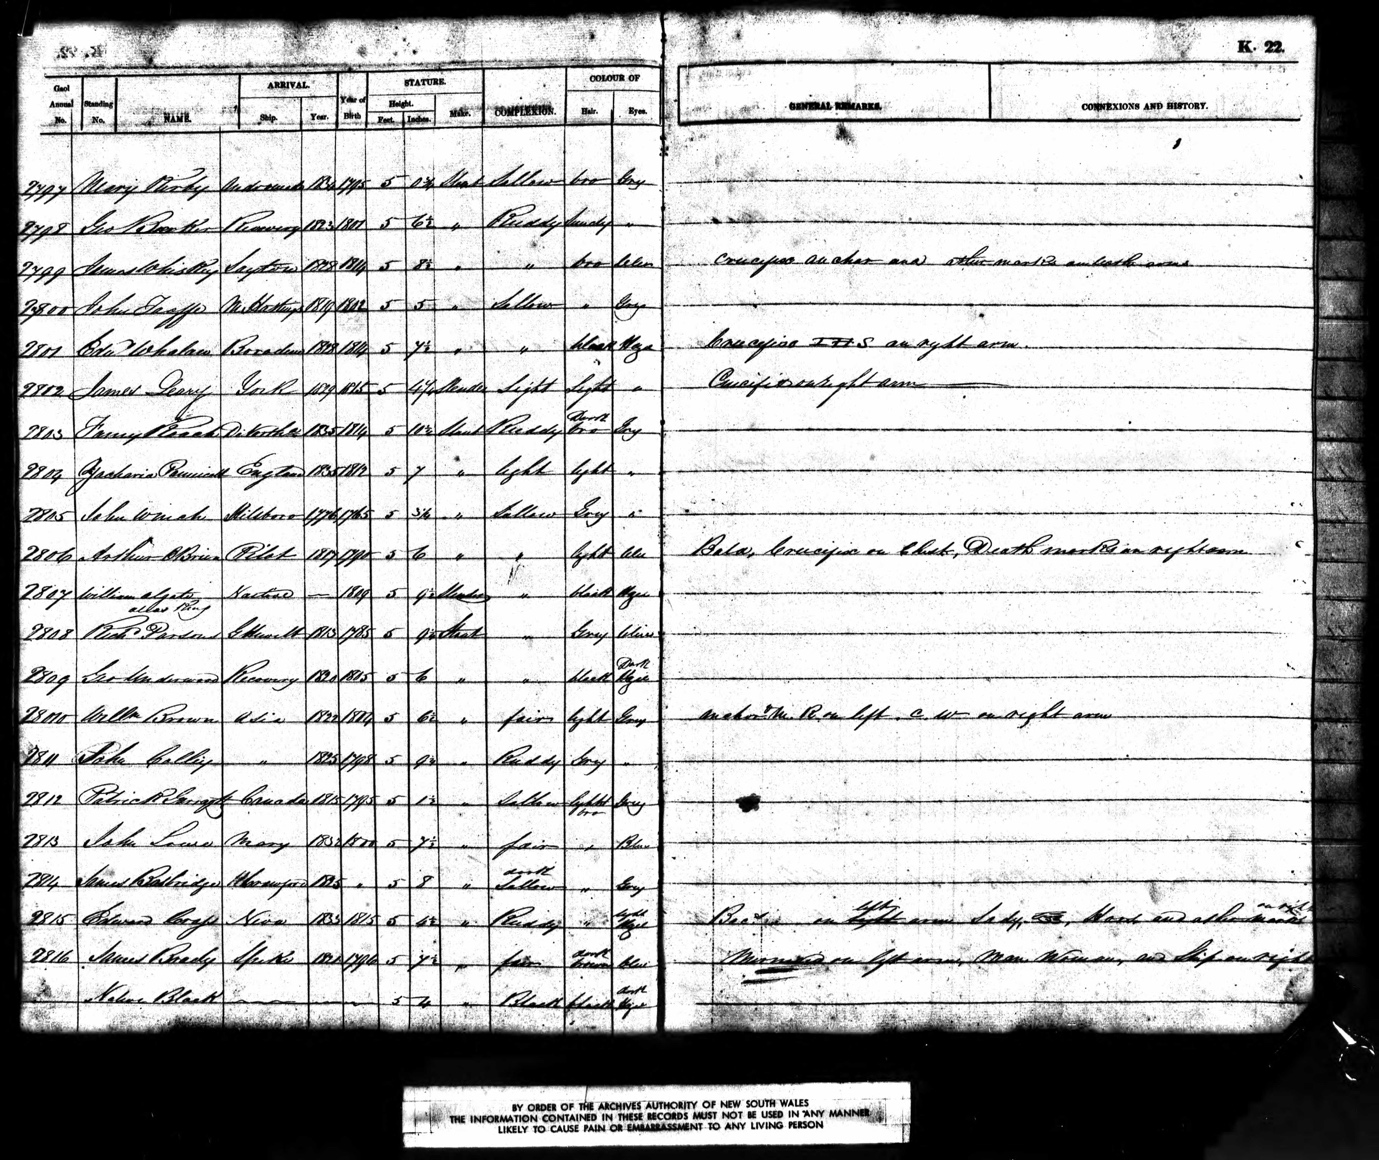 K. 22.
Gaol Annual No. Standing No. NAME. ARRIVAL. Ship. Year. Year of Birth STATURE. Height. Feet. Inches. Make. COMPLEXION. COLOUR OF Hair. Eyes. GENERAL REMARKS. CONNEXIONS AND HISTORY.
2797 Mary Kirby 1795 5 Stout Sallow bro Grey
2798 Geo Barker Recovery 1823 1801 5 6½ " Ruddy Sandy "
2799 James 1828 1814 5 8½ " " bro blue Crucifix anchor and other marks on both arms
2800 John Taaffe M. Hastings 1819 1802 5 5 " Sallow " Grey
2801 Edwd Whalan Borodino 1828 1814 5 7½ " " black Haze Crucifix I H S on right arm.
2802 James Geary York 1829 5 Slender Light Light " Crucifix on right arm
2803 1835 1814 5 10½ Stout Ruddy Dark bro Grey
2804 Zacharia England 1835 1812 5 7 " light light "
2805 John Winch Hilsboro 1765 5 " Sallow Grey "
2806 Arthur OBrien Pilot 1817 1790 5 6 " " light blue Bald, Crucifix on Chest, Death marks on right arm
2807 William alias King Native — 1809 5 9½ Slender " black
2808 Richd Parsons G Hewitt 1813 1785 5 9½ Stout " Grey blue
2809 Geo Underwood Recovery 1805 5 6 " " black Dark Hazle
2810 Willm Brown Asia 1822 1804 5 6½ " fair light Grey anchor M. R. on left. C. W on right arm
2811 John Colley " 1825 1798 5 9½ " Ruddy Grey "
2812 Patrick Canada 1815 1795 5 1½ " Sallow light bro Grey
2813 John Mary 1832 1800 5 7½ " fair " Blue
2814 James 1825 " 5 8 " dark Sallow " Grey
2815 Edward Niva 1833 1815 5 4½ " Ruddy " light on left arm Lady, and other marks on right
2816 James Brady Speke 1796 5 7½ " fair dark brown blue Mermaid on left arm, Man Woman, and Ship on right
Native Black — 5 4 " Black black dark
BY ORDER OF THE ARCHIVES AUTHORITY OF NEW SOUTH WALES
THE INFORMATION CONTAINED IN THESE RECORDS MUST NOT BE USED IN ANY MANNER
LIKELY TO CAUSE PAIN OR EMBARRASSMENT TO ANY LIVING PERSON